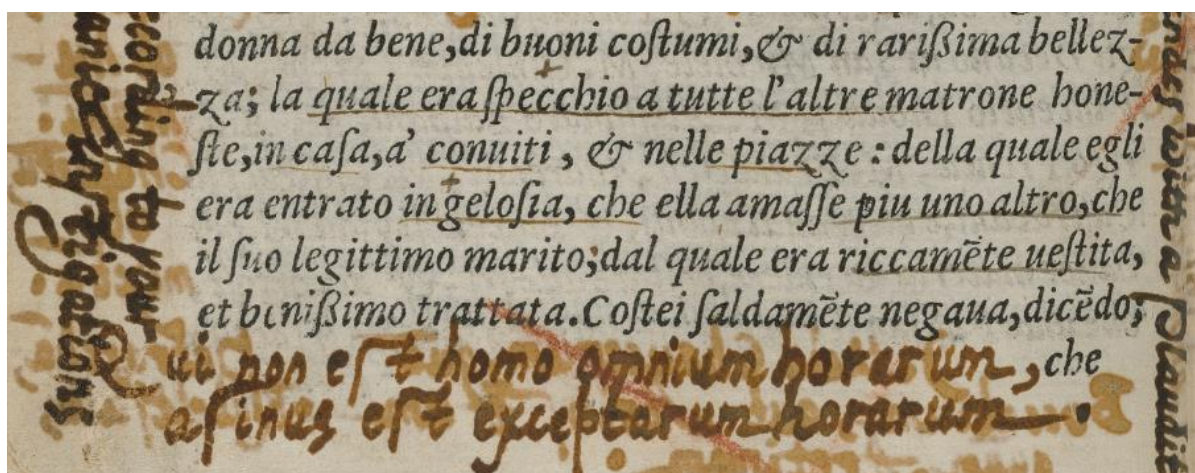 donna da bene, di buoni coſtumi, & di rariſſima bellez-
za; la quale era ſpecchio a tutte l'altre matrone hone-
ſte, in caſa, a' conuiti, & nelle piazze: della quale egli
era entrato in geloſia, che ella amaſſe piu uno altro, che
il ſuo legittimo marito; dal quale era riccamēte ueſtita,
et beniſſimo trattata. Coſtei ſaldamēte negaua, dicēdo;
che
Qui non eſt homo omnium horarum,
aſinus eſt exceptarum horarum.
ccording to your
inſtigations
andes with a Plaudite